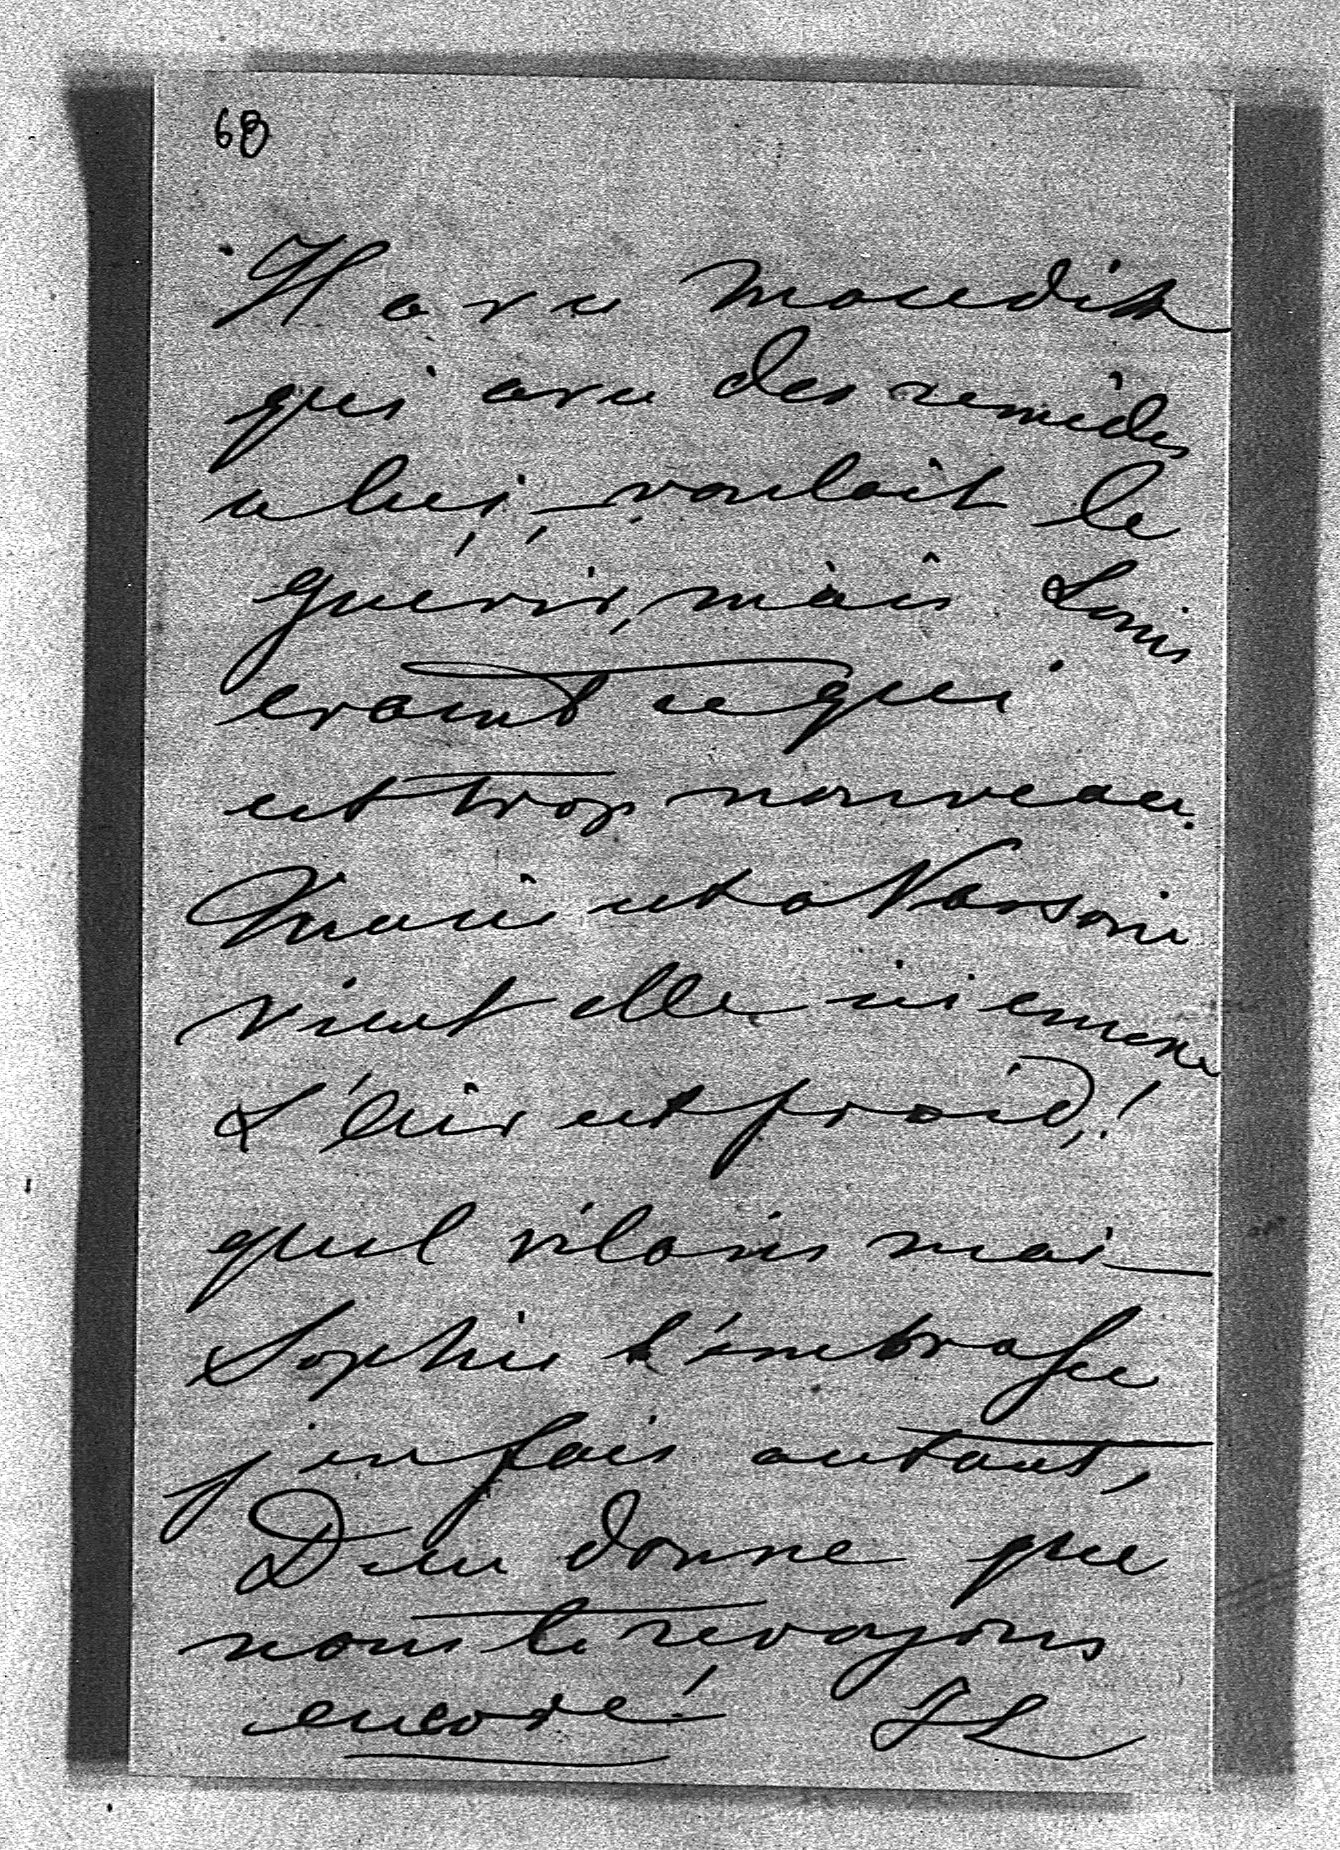 68
Il a vu Maudit
qui avec des remèdes
a lui, voulait le
guérir, mais Louis
craint ce qui
est trop nouveau.
Marie est a Varsovie
vient elle ici encore
L'air est froid,!
quel vilain mai
Sophie t'embrasse
j'en fais autant,
Dieu donne que
nous te revoyons
encore!